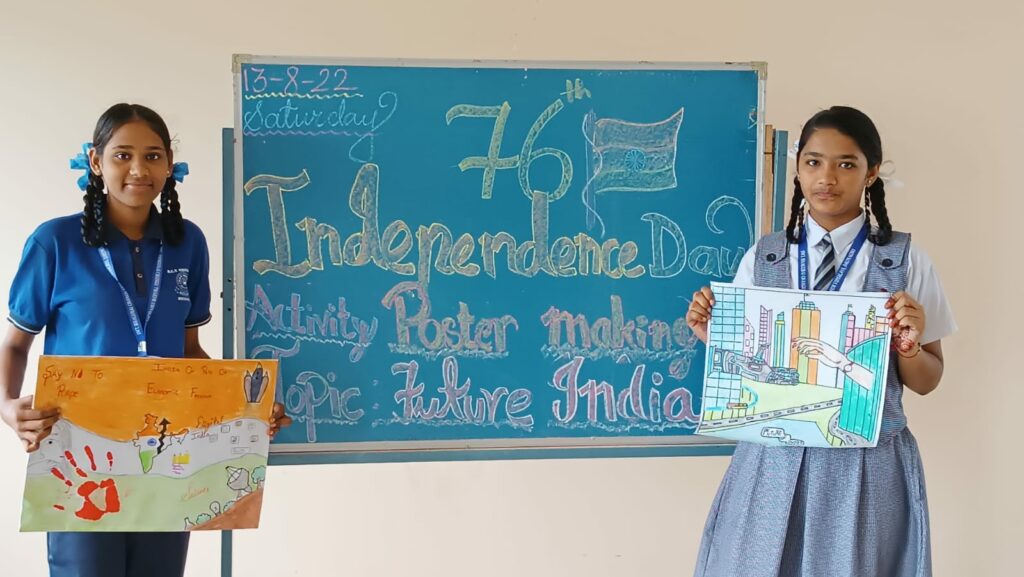 13-8-22
Saturday
76th
Independence Day
Activity Poster making
Topic: Future India
Say No To
Rape
Economic
Digital
India